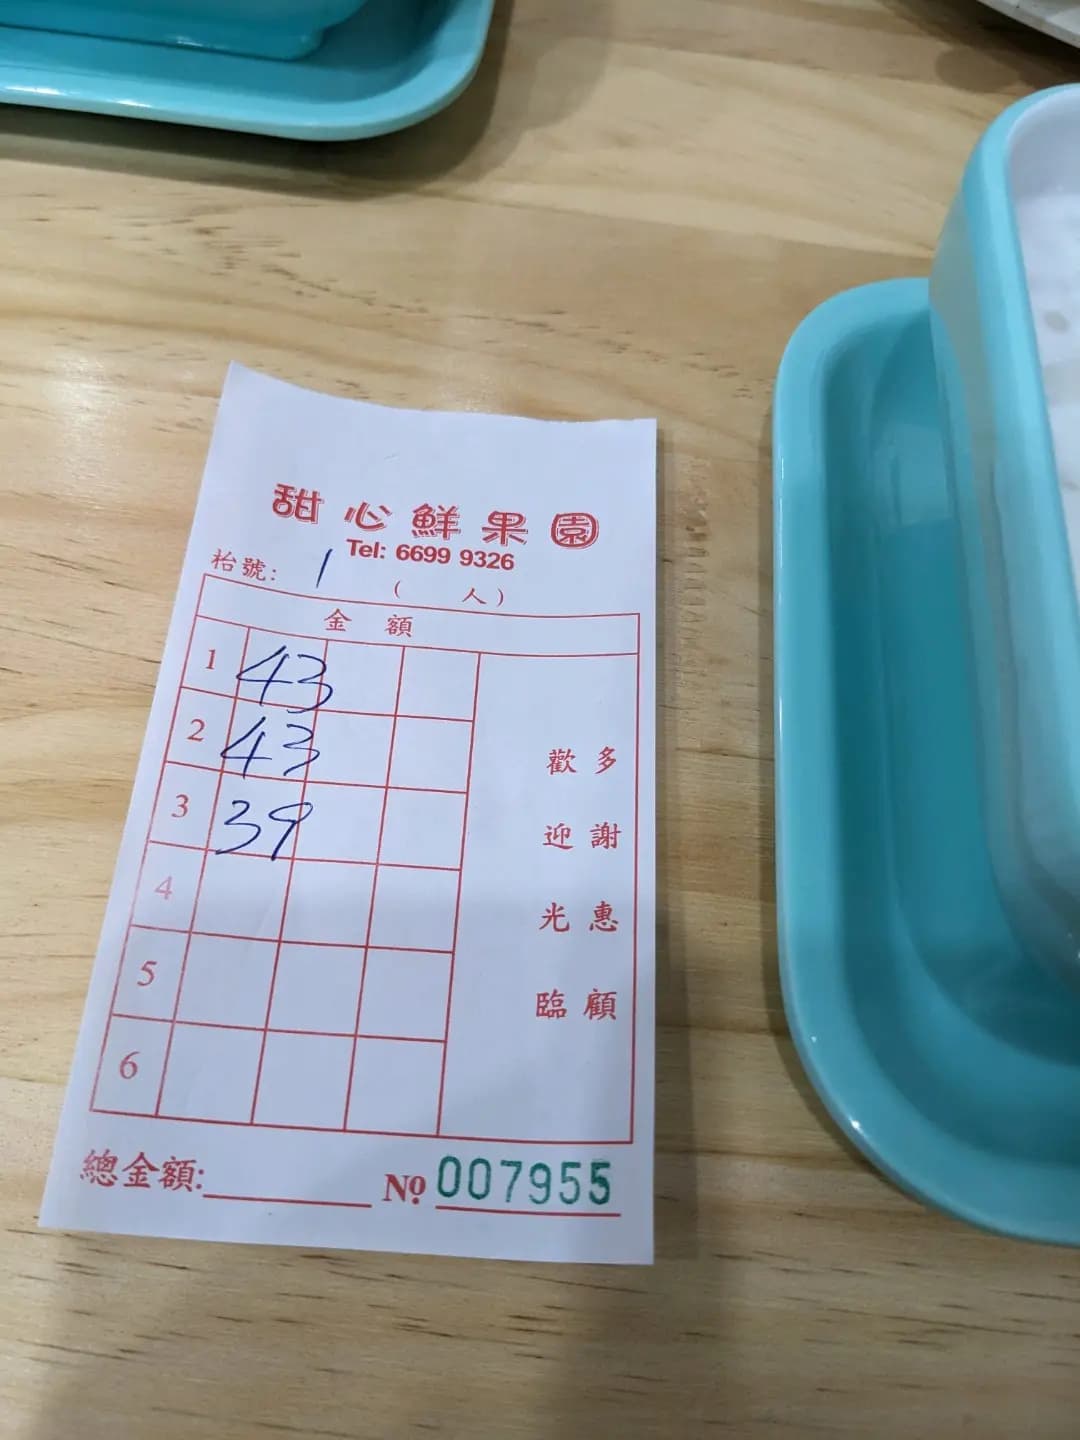 甜心鮮果園
Tel: 6699 9326
枱號: 1 ( 人)
金額
1 43
2 43
3 39
4
5
6
多謝惠顧
歡迎光臨
總金額: № 007955